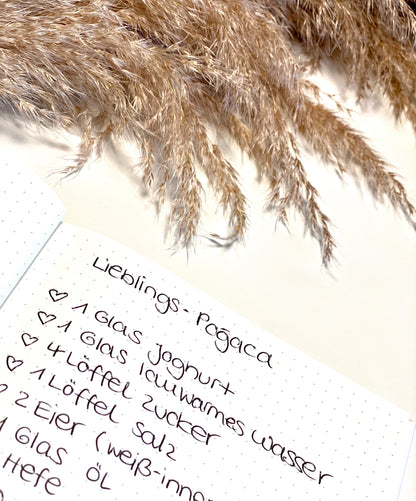 Lieblings-Poğaca
♡ 1 Glas Joghurt
♡ 1 Glas lauwarmes Wasser
♡ 4 Löffel Zucker
♡ 1 Löffel Salz
♡ 2 Eier (weiß-innen
1 Glas Öl
Hefe